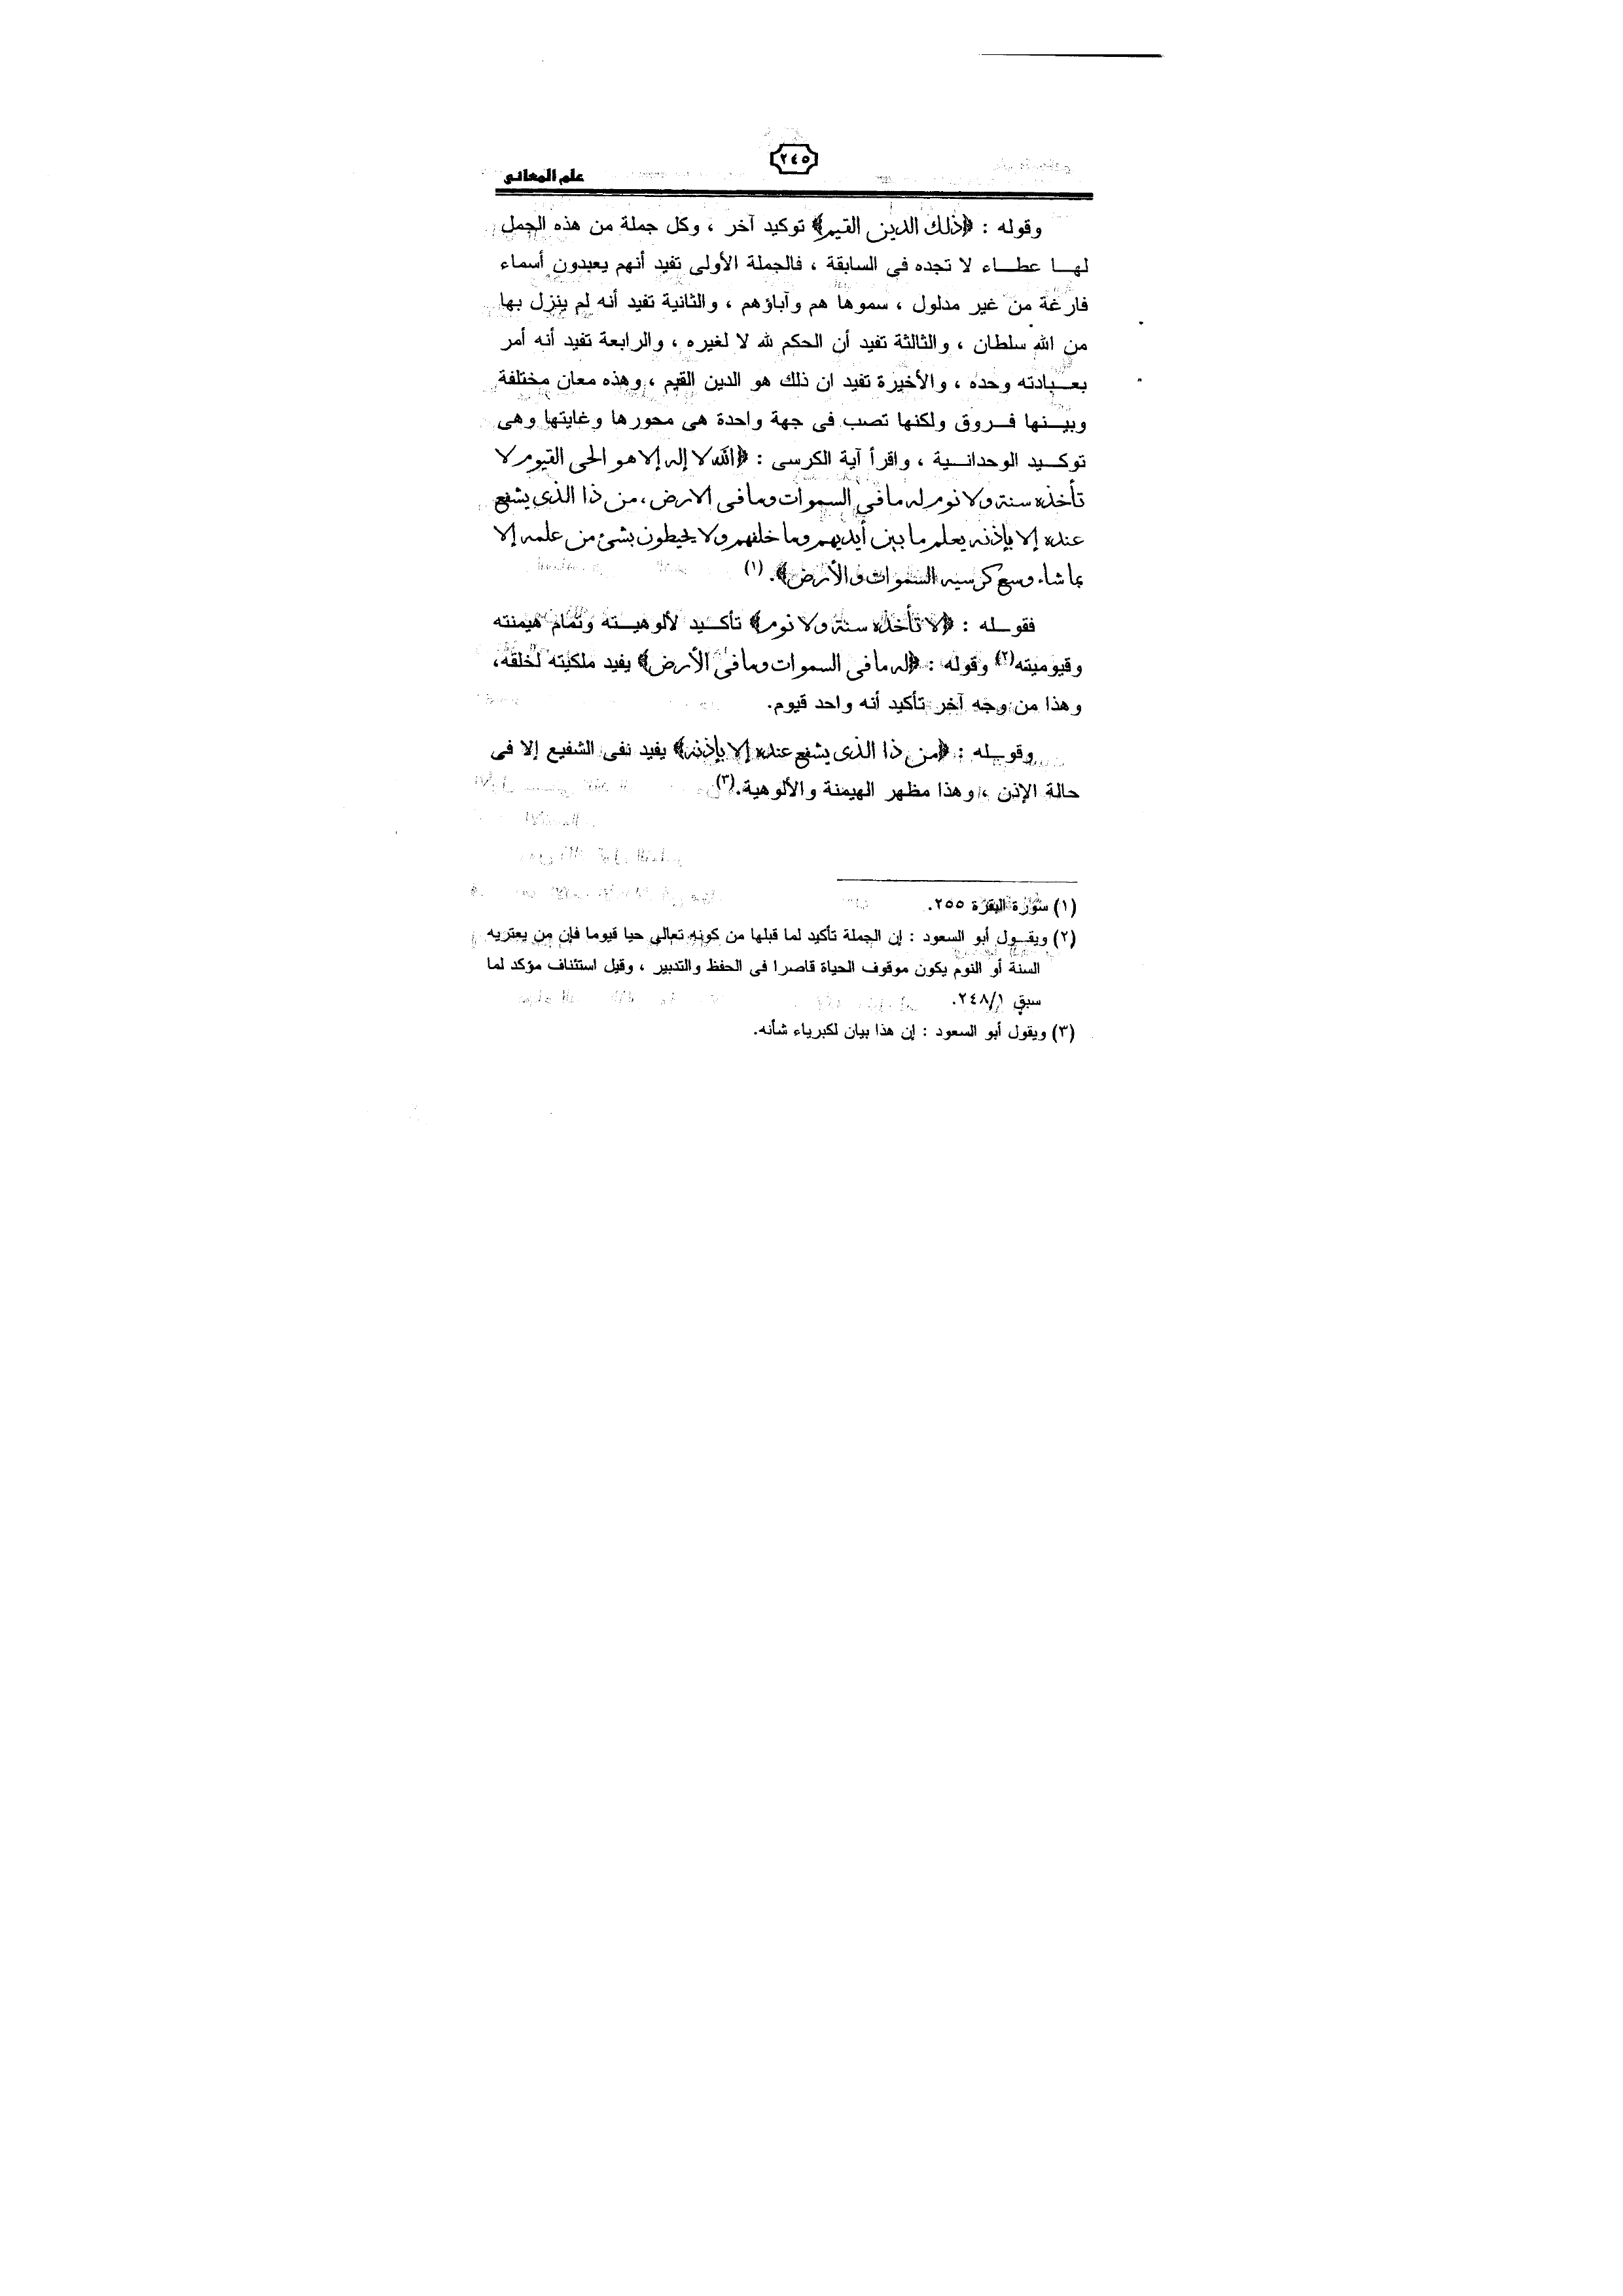 ٢٤٥
علم المعانى
وقوله : ﴿ذلك الدين القيم﴾ توكيد آخر ، وكل جملة من هذه الجمل
لها عطاء لا تجده فى السابقة ، فالجملة الأولى تفيد أنهم يعبدون أسماء
فارغة من غير مدلول ، سموها هم وآباؤهم ، والثانية تفيد أنه لم ينزل بها
من الله سلطان ، والثالثة تفيد أن الحكم لله لا لغيره ، والرابعة تفيد أنه أمر
بعبادته وحده ، والأخيرة تفيد ان ذلك هو الدين القيم ، وهذه معان مختلفة
وبينها فروق ولكنها تصب فى جهة واحدة هى محورها وغايتها وهى
توكيد الوحدانية ، واقرأ آية الكرسى : ﴿الله لا إله إلا هو الحى القيوم لا
تأخذه سنة ولا نوم له ما فى السموات وما فى الارض ، من ذا الذى يشفع
عنده إلا بإذنه يعلم ما بين أيديهم وما خلفهم ولا يحيطون بشئ من علمه إلا
بما شاء وسع كرسيه السموات والأرض﴾. (١)
فقوله : ﴿لا تأخذه سنة ولا نوم﴾ تأكيد لألوهيته وتمام هيمنته
وقيوميته(٢) وقوله : ﴿له ما فى السموات وما فى الأرض﴾ يفيد ملكيته لخلقه،
وهذا من وجه آخر تأكيد أنه واحد قيوم.
وقوله : ﴿من ذا الذى يشفع عنده إلا بإذنه﴾ يفيد نفى الشفيع إلا فى
حالة الإذن ، وهذا مظهر الهيمنة والألوهية.(٣)
(١) سورة البقرة ٢٥٥.
(٢) ويقول أبو السعود : إن الجملة تأكيد لما قبلها من كونه تعالى حيا قيوما فإن من يعتريه
السنة أو النوم يكون موقوف الحياة قاصرا فى الحفظ والتدبير ، وقيل استئناف مؤكد لما
سبق ٢٤٨/١.
(٣) ويقول أبو السعود : إن هذا بيان لكبرياء شأنه.